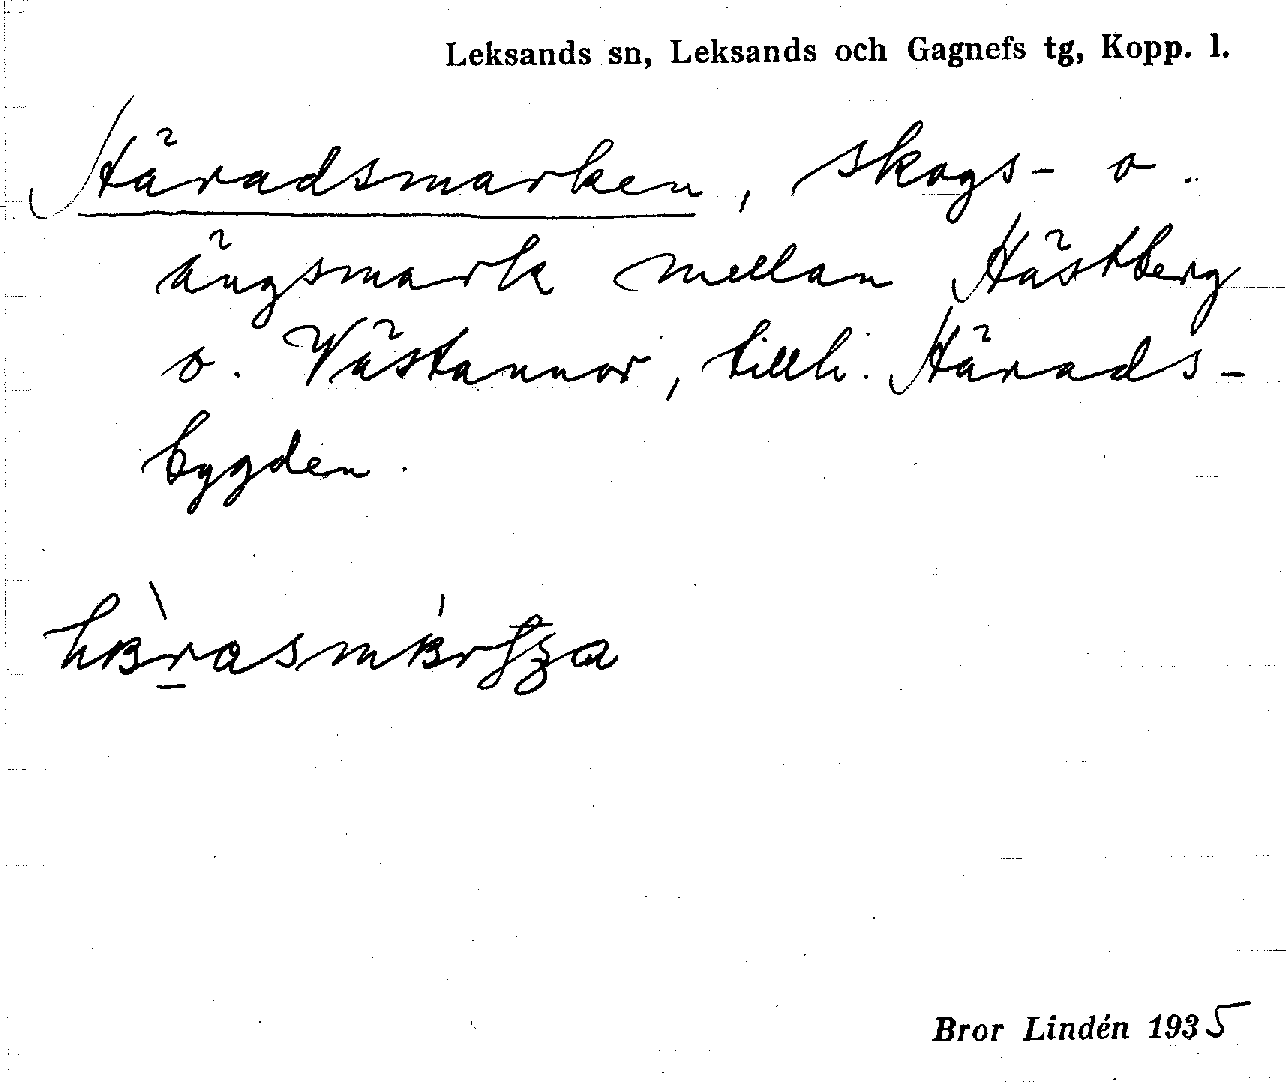 Leksands sn, Leksands och Gagnefs tg, Kopp. l.
Häradsmarken, skogs- o.
ängsmark mellan Hästberg
o. Västannor, tillh. Härads-
bygden.
Bror Lindén 1935